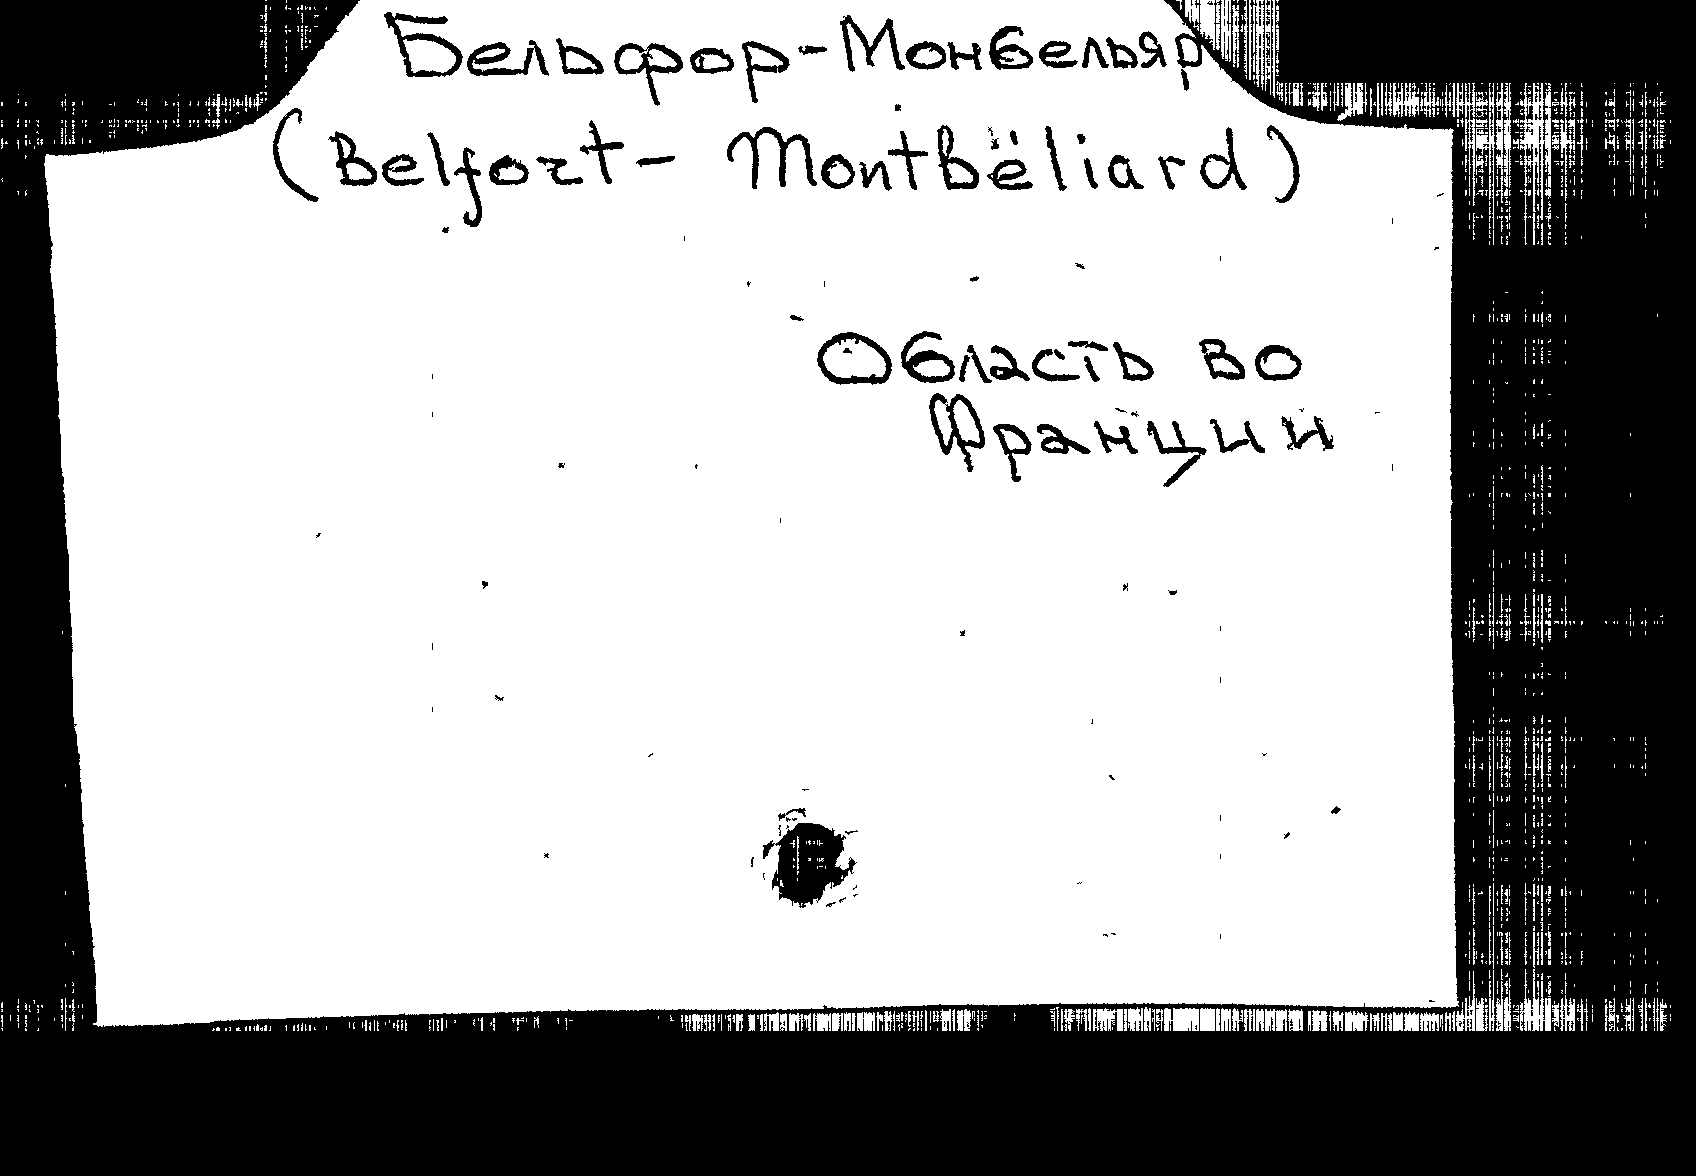 Бельфор-Монбельяр
(Belfort- Montbëliard)
Область во
Франции